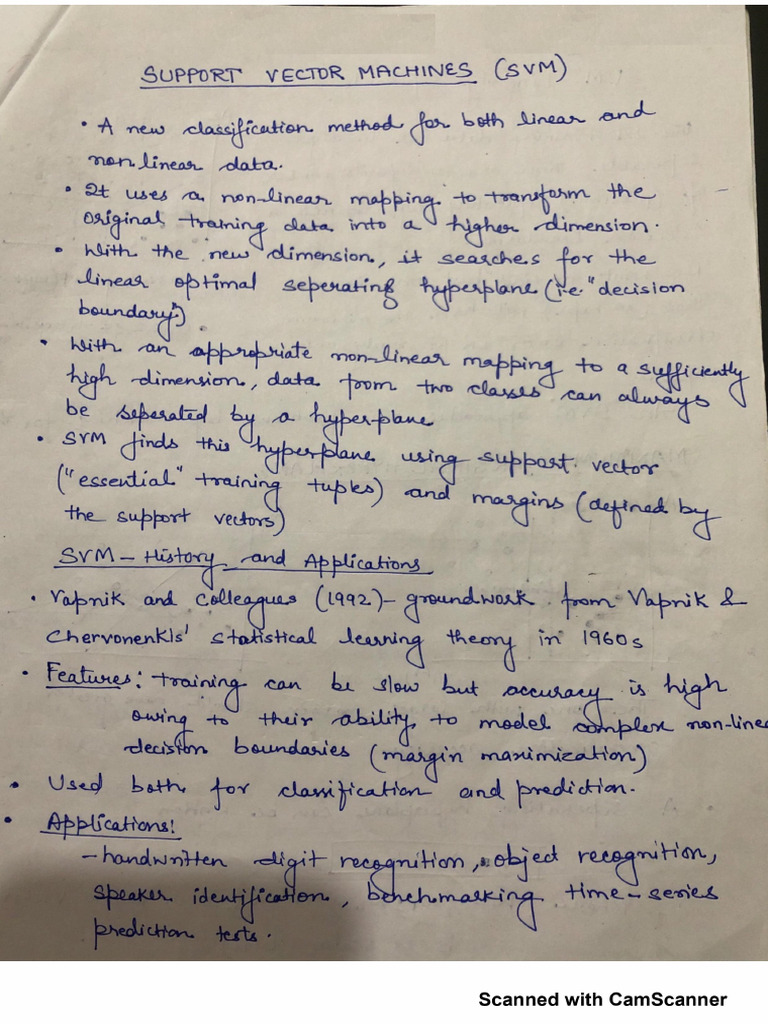 SUPPORT VECTOR MACHINES (SVM)
• A new classification method for both linear and
non linear data.
• It uses a non-linear mapping to transform the
original training data into a higher dimension.
• With the new dimension, it searches for the
linear optimal seperating hyperplane (i.e. "decision
boundary")
• With an appropriate non-linear mapping to a sufficiently
high dimension, data from two classes can always
be seperated by a hyperplane
• SVM finds this hyperplane using support vector
("essential" training tuples) and margins (defined by
the support vectors)
SVM - History and Applications
• Vapnik and Colleagues (1992) - groundwork from Vapnik &
Chervonenkis' statistical learning theory in 1960s
• Features: training can be slow but accuracy is high
owing to their ability to model complex non-linea
decision boundaries (margin maximization)
• Used both for classification and prediction.
• Applications:
- handwritten digit recognition, object recognition,
speaker identification, benchmarking time-series
prediction tests.
Scanned with CamScanner